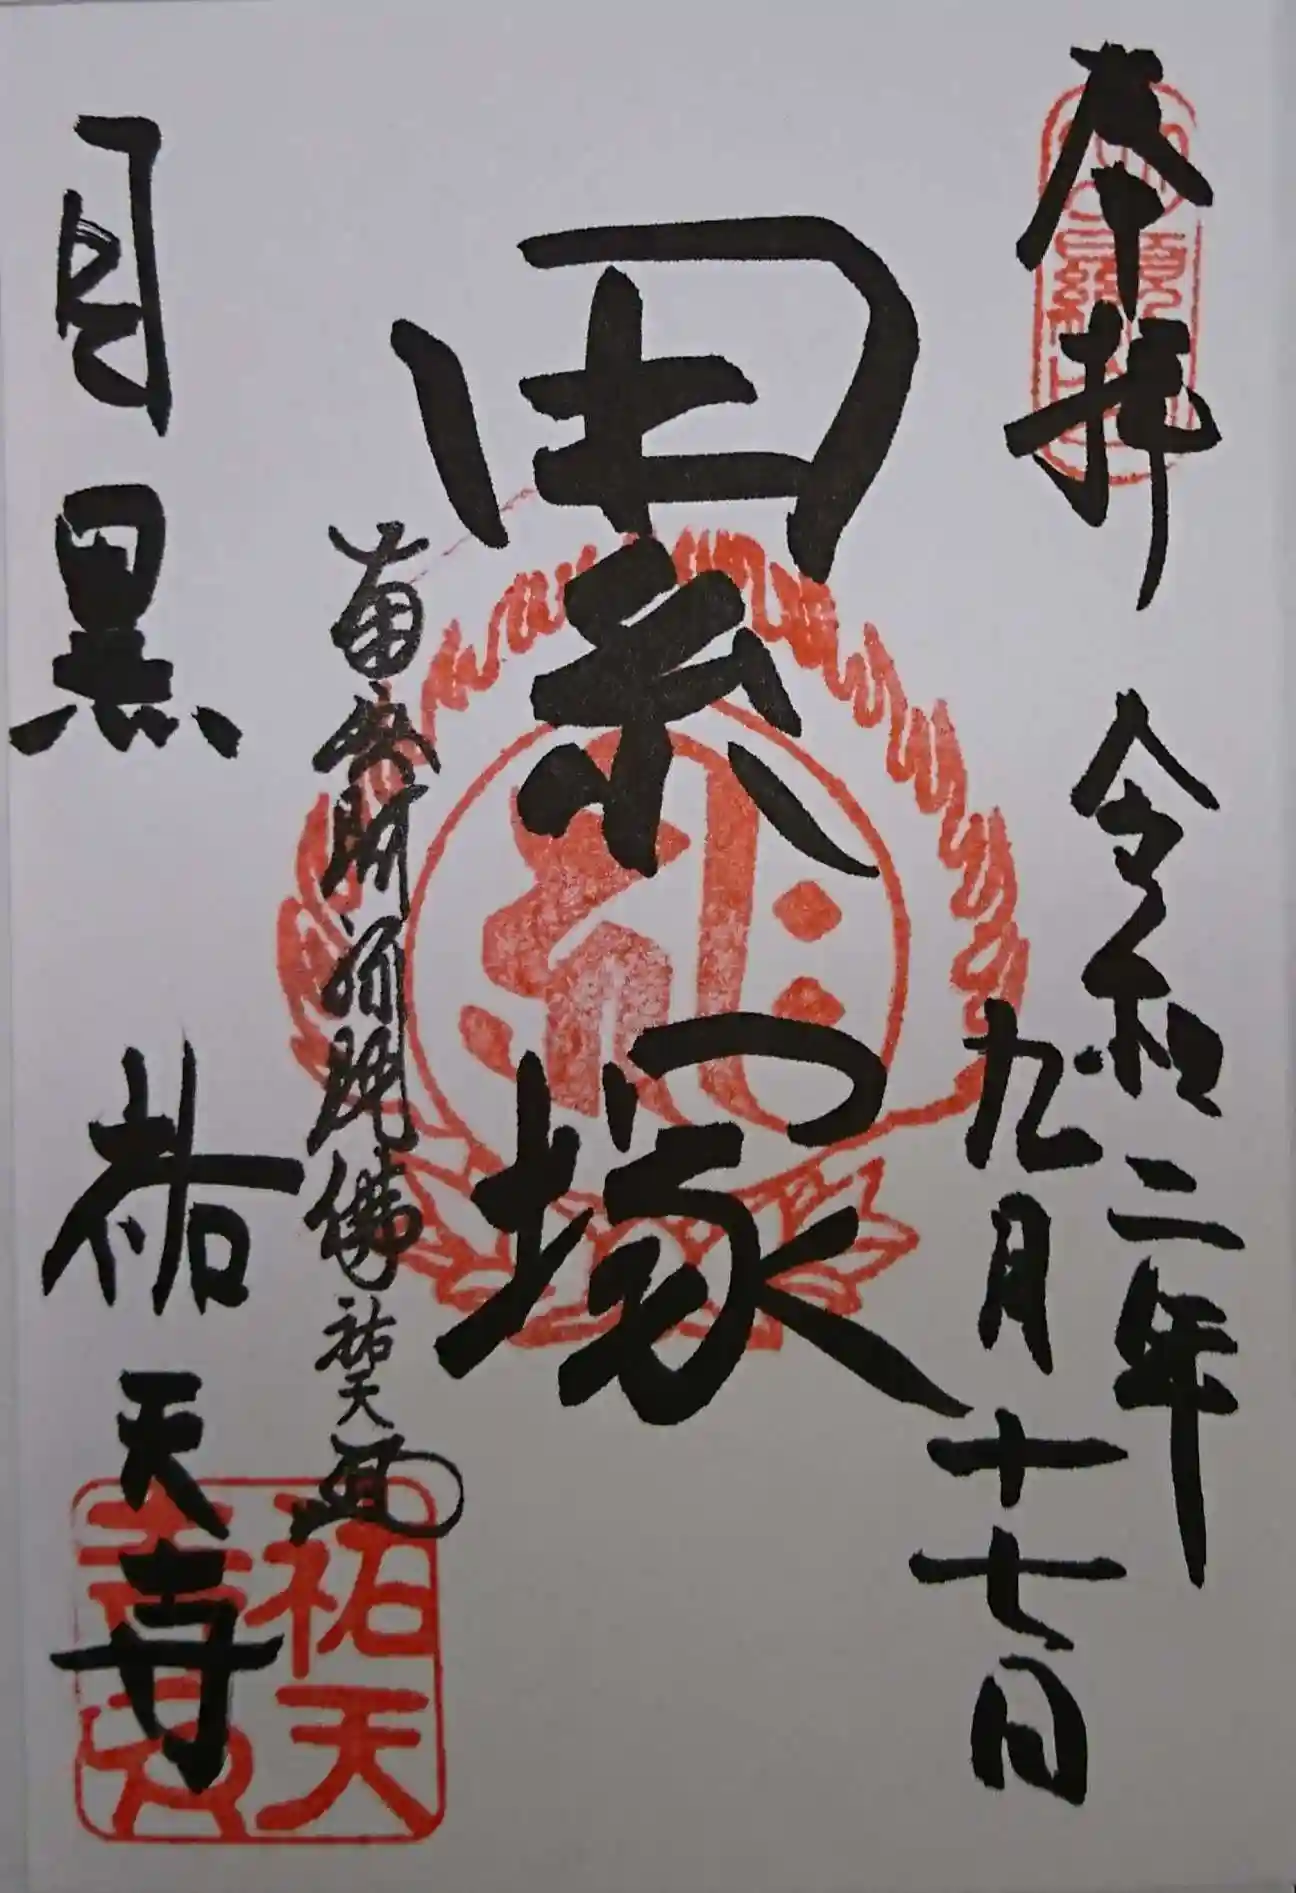 奉拝
令和二年
九月十七日
累塚
南無阿弥陀佛
祐天
目黒
祐天寺
祐天